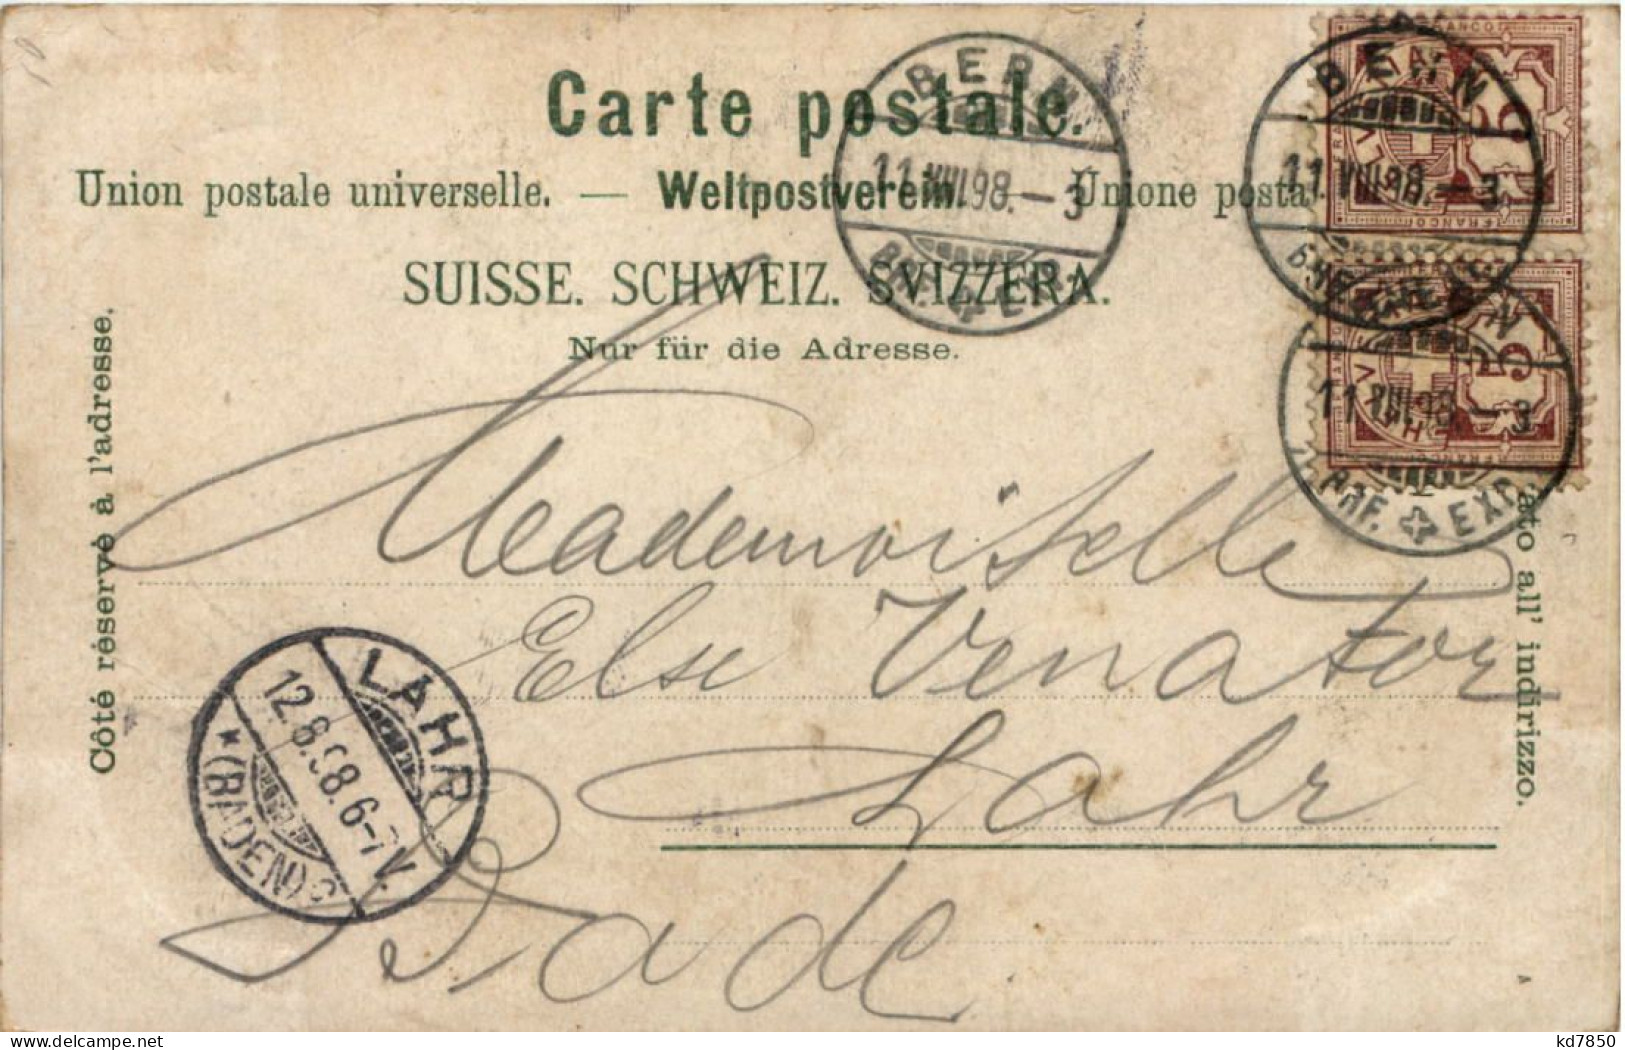 Carte postale.
Union postale universelle. — Weltpostverein. — Unione posta
SUISSE. SCHWEIZ. SVIZZERA.
Nur für die Adresse.
Côté réservé à l'adresse.
ato all' indirizzo.
BERN
11.VIII.98.–3
BRF. EXP.
BERN
11.VIII.98.–3
11.VIII.98.–3
BRF. EXP.
FRANCO
FRANCO
5
5
Mademoiselle
Else Venator
Lahr
Bade
LAHR
12.8.98.6-7V.
* (BADEN) 2
A
kd7850